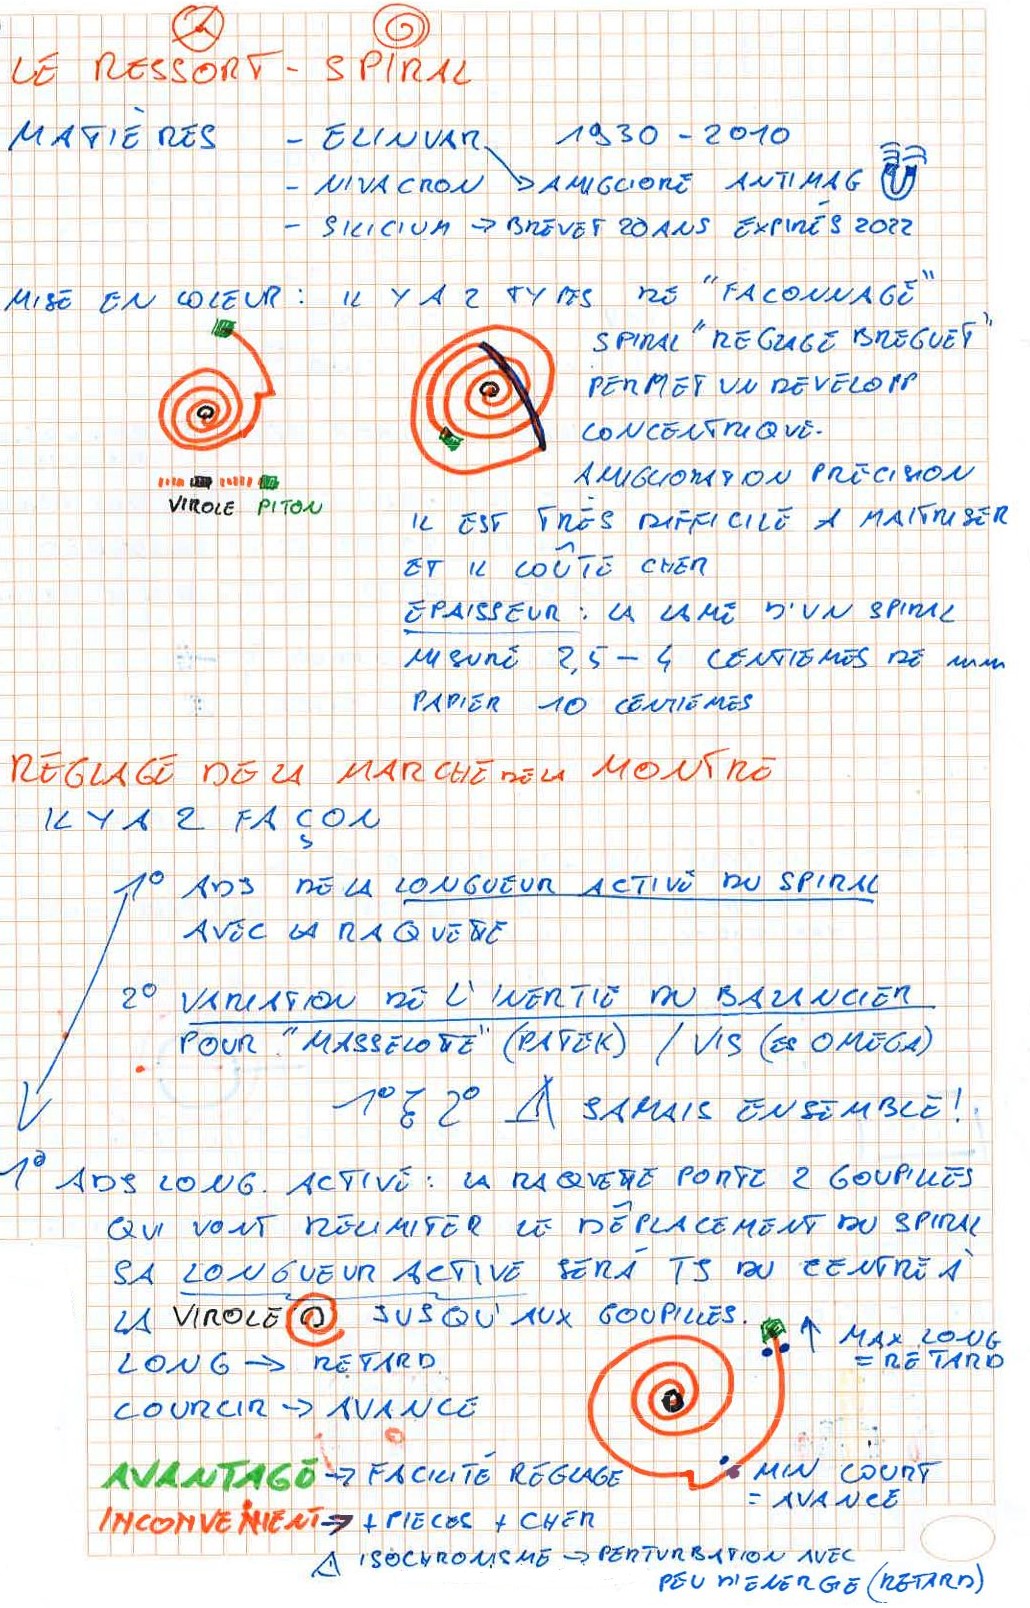 LE RESSORT - SPIRAL
MATIÈRES - ELINVAR 1930 - 2010
- NIVACRON → AMIGLIORE ANTIMAG
- SILICIUM → BREVET 20 ANS EXPIRÉS 2022
MISE EN COLEUR : IL Y A 2 TYPES DE "FACONNAGE"
SPIRAL "REGLAGE BREGUET"
PERMET UN DEVELOPP
CONCENTRIQUE.
AMIGLIORATION PRÈCISION
VIROLE PITON
IL EST TRÈS DIFFICILE A MAITRISER
ET IL COÛTE CHER
EPAISSEUR : LA LAME D'UN SPIRAL
MISURE 2,5 - 4 CENTIEMES DE mm
PAPIER 10 CENTIÈMES
REGLAGE DE LA MARCHE DE LA MONTRE
IL Y A 2 FAÇON
S
1° ADJ DE LA LONGUEUR ACTIVE DU SPIRAL
AVEC LA RAQUETTE
2° VARIATION DE L'INERTIE DU BALANCIER
POUR "MASSELOTTE" (PATEK) / VIS (ES OMEGA)
1° & 2° JAMAIS ENSEMBLE!
1° ADJ LONG. ACTIVE : LA RAQUETTE PORTE 2 GOUPILLES
QUI VONT DÉLIMITER LE DÉPLACEMENT DU SPIRAL
SA LONGUEUR ACTIVE SERÁ TJ DU CENTRE À
LA VIROLE JUSQU'AUX GOUPILLES.
LONG → RETARD
COURCIR → AVANCE
MAX LONG
= RETARD
MIN COURT
= AVANCE
AVANTAGE → FACILITÉ RÉGLAGE
INCONVENIENT → + PIECES + CHER
ISOCHRONISME → PERTURBATION AVEC
PEU D'ENERGIE (RETARD)